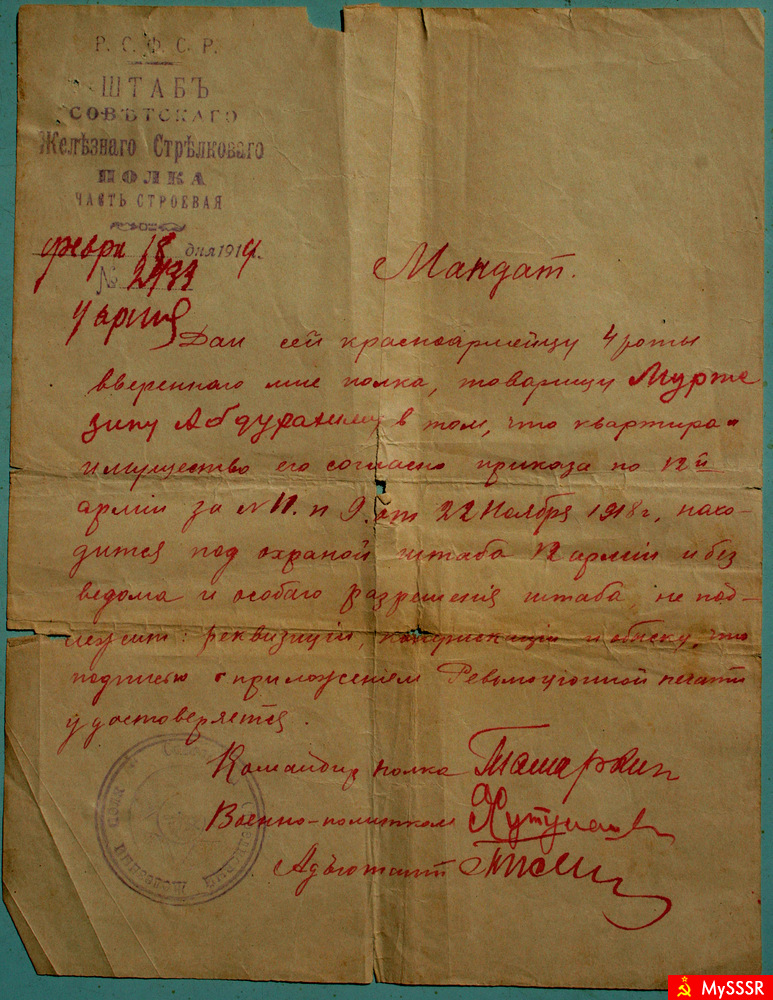 Р. С. Ф. С. Р.
ШТАБЪ
СОВѢТСКАГО
Желѣзнаго Стрѣлковаго
ПОЛКА
ЧАСТЬ СТРОЕВАЯ
февр 18 дня 1919 г.
№ 2433
Мандат.
Дан сей красноармейцу 4 роты
вверенного мне полка, товарищу Мурта
зину Абдурахиму в том, что квартира и
имущество его согласно приказа по 12й
армии за №11. п 9. от 22 Ноября 1918 г, нахо-
дится под охраной штаба 12 армiи и без
ведома и особаго разрешения штаба, не под-
лежит: реквизицiи, конфискацiи и обыску, что
подписью с приложенiем Революцiонной печати
удостоверяется.
Командир полка
Военно-политком
Адъютант
MySSSR